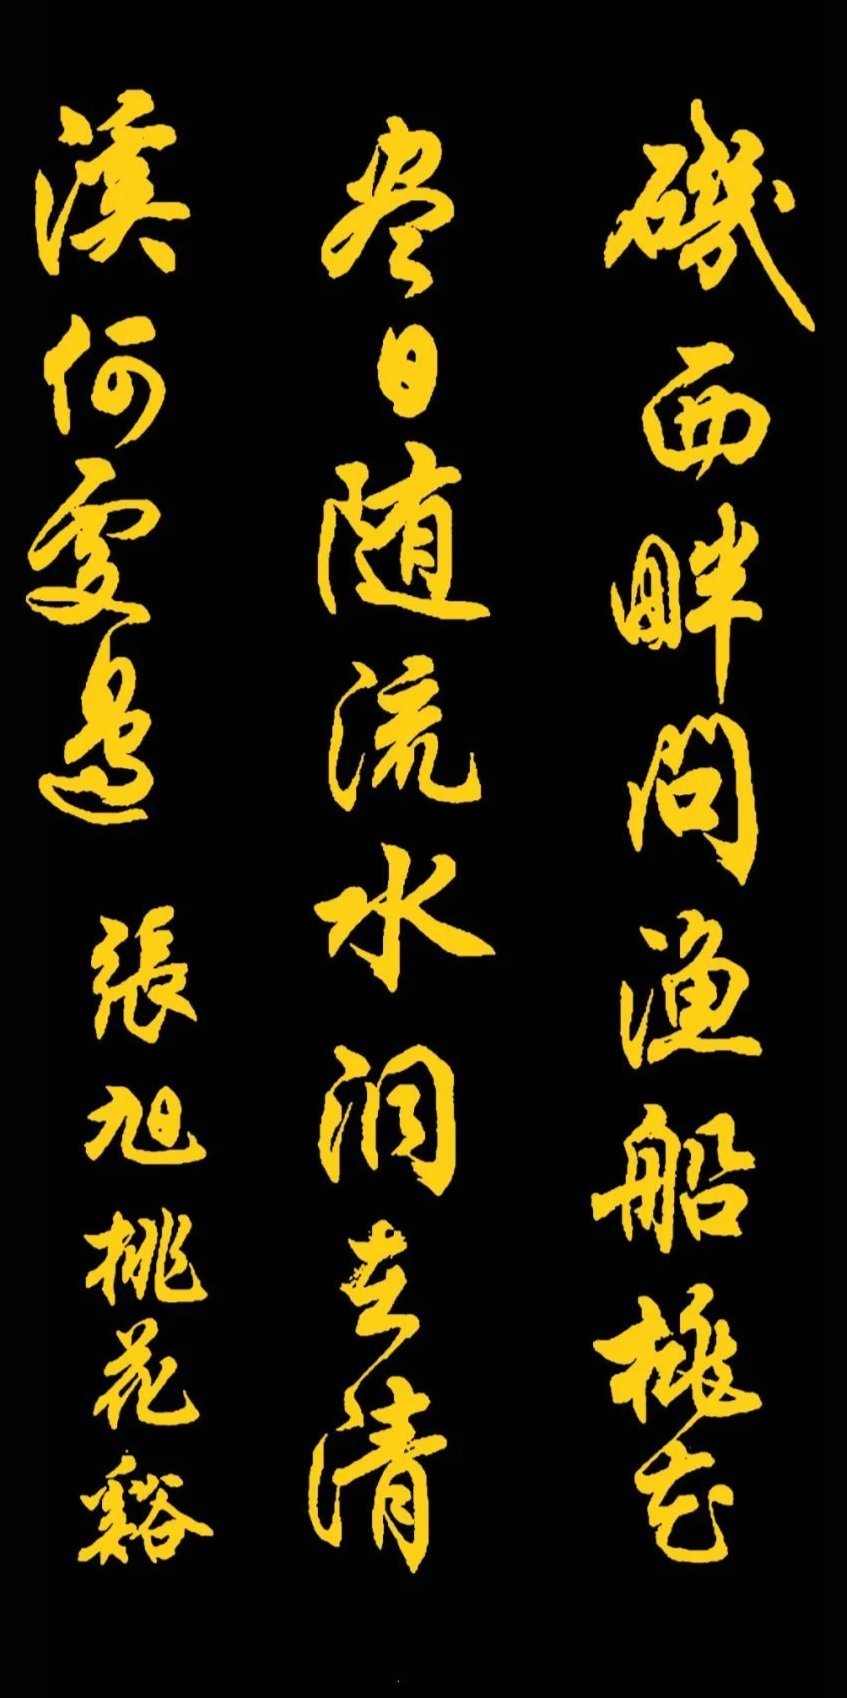 磯西畔問漁船桃花
尽日随流水洞在清
溪何處邊 張旭桃花谿